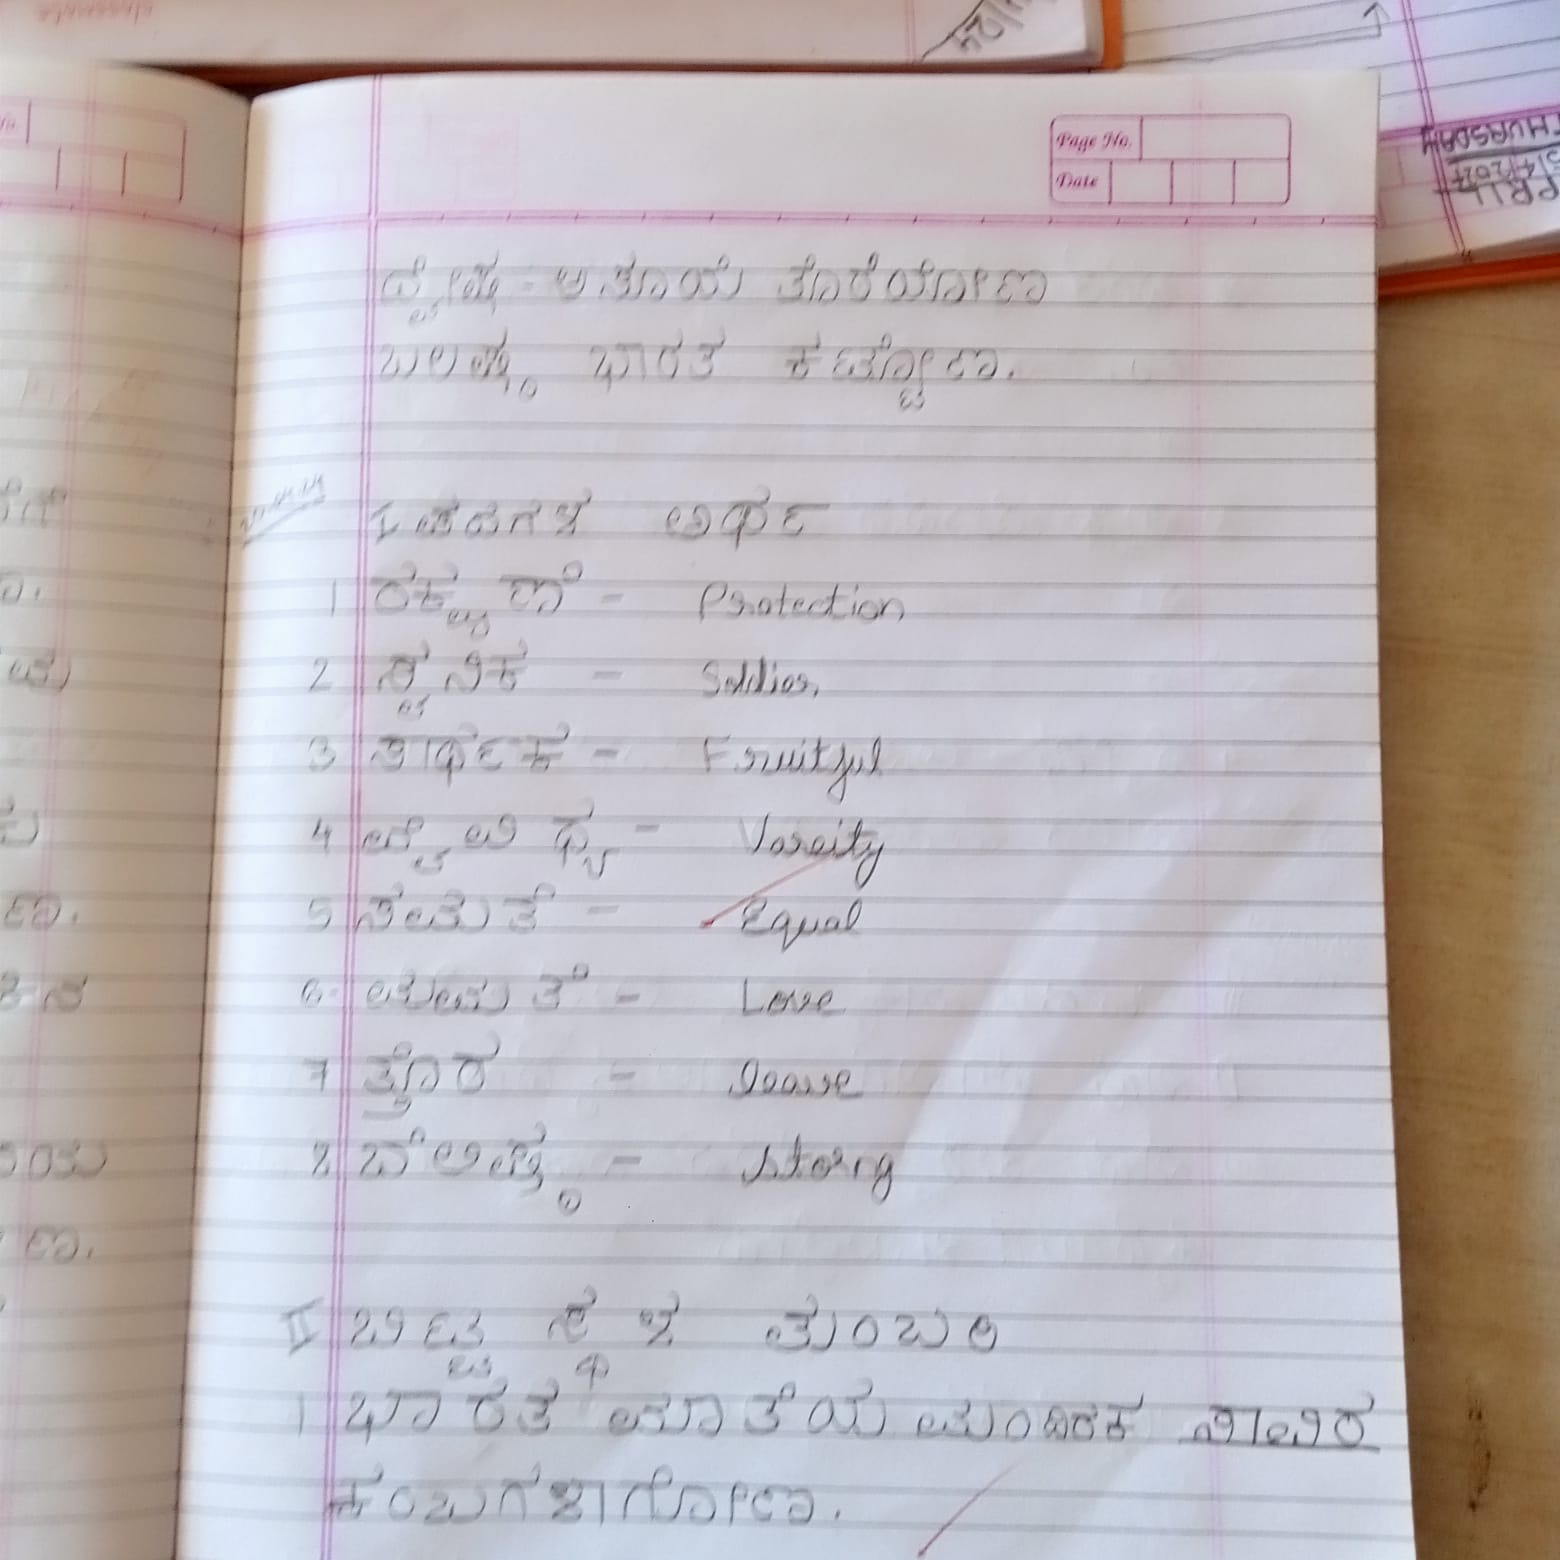 Page No.
Date
ದ್ವೇಷ - ಅಸೂಯೆ ತೊರೆಯೋಣ
ಬಲಿಷ್ಠ ಭಾರತ ಕಟ್ಟೋಣ.
I ಪದಗಳ ಅರ್ಥ
1 ರಕ್ಷಣೆ - Protection
2 ಸೈನಿಕ - Soldier,
3 ಸಾರ್ಥಕ - Fruitful
4 ವೈವಿಧ್ಯ - Vareity
5 ಸಮತೆ - Equal
6. ಮಮತೆ - Love
7 ತ್ತೊರ - leave
8 ಬಲಿಷ್ಠ - storng
II ಬಿಟ್ಟ ಸ್ಥಳ ತುಂಬಿರಿ
1 ಭಾರತ ಮಾತೆಯ ಮಂದಿರಕ ಸಾವಿರ
ಕಂಬಗಳಾಗೋಣ.
THURSDAY